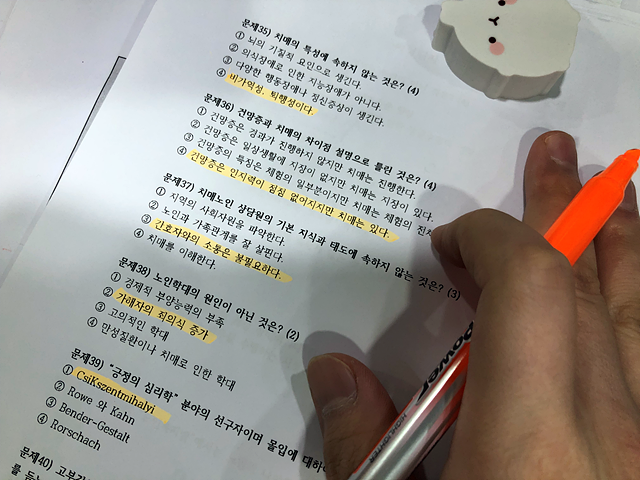 문제35) 치매의 특성에 속하지 않는 것은? (4)
① 뇌의 기질적 요인으로 생긴다.
② 의식장애로 인한 지능장애가 아니다.
③ 다양한 행동장애나 정신증상이 생긴다.
④ 비가역성, 퇴행성이다.
문제36) 건망증과 치매의 차이점 설명으로 틀린 것은? (4)
① 건망증은 경과가 진행하지 않지만 치매는 진행한다.
② 건망증은 일상생활에 지장이 없지만 치매는 지장이 있다.
③ 건망증의 특징은 체험의 일부분이지만 치매는 체험의
④ 건망증은 인지력이 점점 없어지지만 치매는 있다.
문제37) 치매노인 상담원의 기본 지식과 태도에 속하지 않는 것은? (3)
① 지역의 사회자원을 파악한다.
② 노인과 가족관계를 잘 살핀다.
③ 간호자와의 소통은 불필요하다.
④ 치매를 이해한다.
문제38) 노인학대의 원인이 아닌 것은? (2)
① 경제적 부양능력의 부족
② 가해자의 죄의식 증가
③ 고의적인 학대
④ 만성질환이나 치매로 인한 학대
문제39) "긍정의 심리학" 분야의 선구자이며 몰입에 대하
① CsiKszentmihalyi
② Rowe 와 Kahn
③ Bender-Gestalt
④ Rorschach
문제40)
power